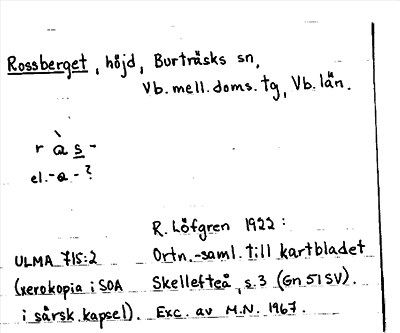 Rossberget, höjd, Burträsks sn,
Vb. mell. doms. tg, Vb. län.
r ὰ s -
el. -a- ?
R. Löfgren 1922 :
ULMA 715:2 Ortn.-saml. till kartbladet
(xerokopia i SOA Skellefteå, s. 3 (Gn 51 SV).
i särsk. kapsel). Exc. av M.N. 1967.